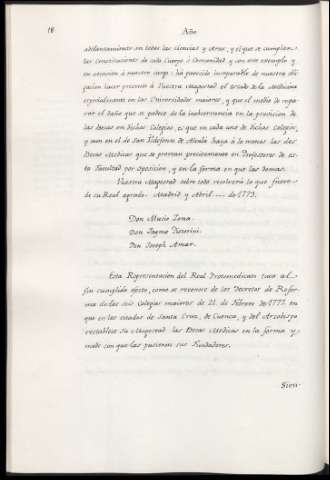 18 Año
adelantamiento en todas las Ciencias y Artes, y el que se cumplan
las Constituciones de cada Cuerpo ó Comunidad y con este exemplo y
en atencion à nuestro cargo, ha parecido inseparable de nuestra
hacer presente à Vuestra Magestad el estado de la Medicina
especialmente en las Universidades maiores, y que el medio de repa-
rar el daño que se padece de la inobservancia en la provision de
las becas en dichos Colegios, es que en cada uno de dichos Colegios,
y aun en el de San Ildefonso de Alcalá haya à lo menos las dos
Becas Medicas que se provean precisamente en Profesores de es-
ta Facultad por oposicion, y en la forma en que las demas.
Vuestra Magestad sobre todo resolverá lo que fuere
de su Real agrado. Madrid y Abril .... de 1773.
Don Mucio Zona.
Don
Don Joseph Amar.
Esta Representacion del Real Protomedicato tuvo al
fin cumplido efecto, como se reconoce de los Decretos de Refor-
ma de los seis Colegios maiores de 21. de Febrero de 1777. en
que en los citados de Santa Cruz, de Cuenca, y del Arzobispo
restablece Su Magestad las Becas Medicas en la forma y
modo con que las pusieron sus Fundadores.
Sien-